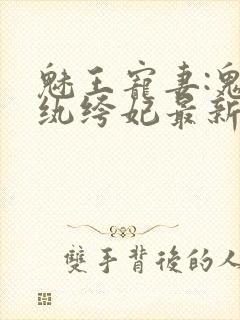 魅王寵妻:鬼
纨绔妃最新
雙手背後的人